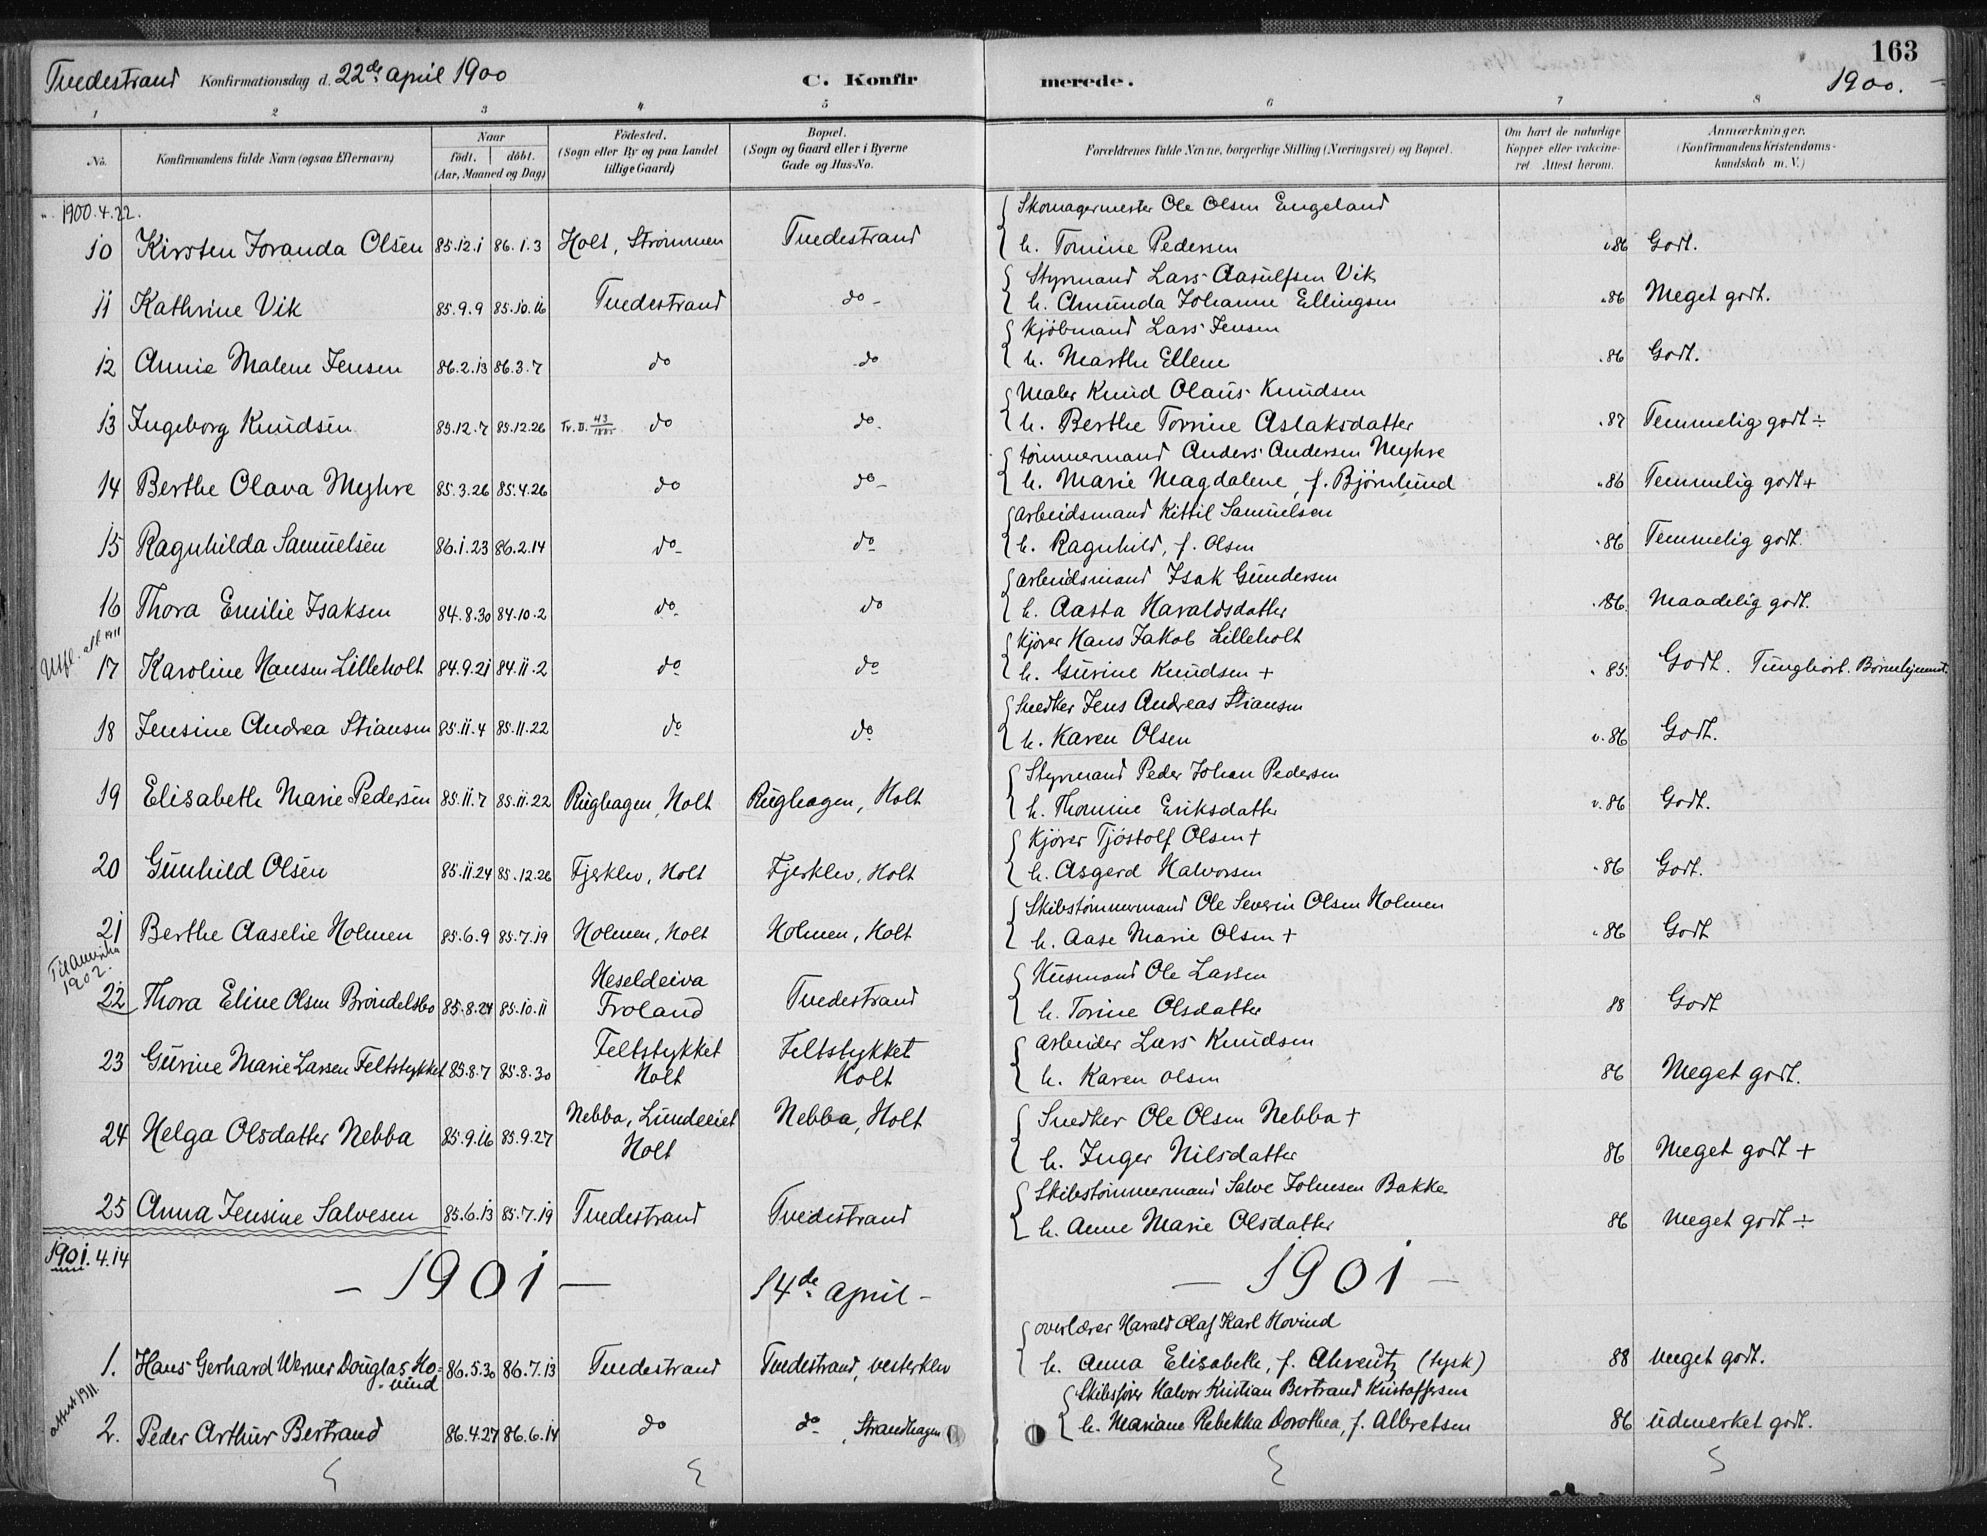 163
Tvedestrand Konfirmationsdag d. 22de april 1900 C. Konfirmerede. 1900.
1 2 3 4 5 6 7 8
No. Konfirmandens fulde Navn (ogsaa Efternavn) Naar født. døbt. (Aar, Maaned og Dag) Födested. (Sogn eller By og paa Landet tillige Gaard) Bopæl. (Sogn og Gaard eller i Byerne Gade og Hus-No. Forældrenes fulde Navne, borgerlige Stilling (Næringsvei) og Bopæl. Om havt de naturlige Kopper eller vakcineret. Attest herom. Anmærkninger. (Konfirmandens Kristendomskundskab m. V.)
1900.4.22.
Skomagermester Ole Olsen Engeland
10 Kirsten Joranda Olsen 85.12.1 86.1.3 Holt, Strømmen Tvedestrand h. Tomine Pedersen v 86 Godt.
Styrmand Lars Aasulfsen Vik
11 Kathrine Vik 85.9.9 85.10.16 Tvedestrand do h. Amunda Johanne Ellingsen 86 Meget godt.
Kjøbmand Lars Jensen
12 Annie Malene Jensen 86.2.13 86.3.7 do do h. Marthe Ellene 86 Godt.
Maler Knud Olaus Knudsen
13 Ingeborg Knudsen 85.12.7 85.12.26 do do h. Berthe Tomine Aslaksdatter 87 Temmelig godt ÷
tømmermand Anders Andersen Myhre
14 Berthe Olava Myhre 85.3.26 85.4.26 do do h. Marie Magdalene, f. Bjørnlund 86 Temmelig godt +
arbeidsmand Kittil Samuelsen
15 Ragnhilda Samuelsen 86.1.23 86.2.14 do do h. Ragnhild, f. Olsen 86 Temmelig godt.
arbeidsmand Isak Gundersen
16 Thora Emilie Isaksen 84.8.30 84.10.2 do do h. Aasta Haraldsdatter 86. Maadelig godt.
Utfl. att 1911
Kjører Hans Jakob Lilleholt
17 Karoline Hansen Lilleholt 84.9.21 84.11.2 do do h. Gurine Knudsen + 85. Godt. Tunghørt. Børnehjemmet.
Snedker Jens Andreas Stiansen
18 Jensine Andrea Stiansen 85.11.4 85.11.22 do do h. Karen Olsen v. 86 Godt.
Styrmand Peder Johan Pedersen
19 Elisabeth Marie Pedersen 85.11.7 85.11.22 Rughagen, Holt Rughagen, Holt h. Thomine Eriksdatter v. 86 Godt.
Kjører Tjøstolf Olsen +
20 Gunhild Olsen 85.11.24 85.12.26 Fjerklev, Holt Fjerklev, Holt h. Asgerd Halvorsen 86 Godt.
Skibstømmermand Ole Severin Olsen Holmen
21 Berthe Aaselie Holmen 85.6.9 85.7.19 Holmen, Holt Holmen, Holt h. Aase Marie Olsen + 86 Godt
Til Amerika 1902.
Heseldeiva Husmand Ole Larsen
22 Thora Eline Olsen Brøndelsbo 85.8.24 85.10.11 Froland Tvedestrand h. Torine Olsdatter 88 Godt
Feltstykket Feltstykket arbeider Lars Knudsen
23 Gurine Marie Larsen Feltstykket 85.8.7 85.8.30 Holt Holt h. Karen Olsen 86 Meget godt.
Nebba, Lundeeiet Nebba, Holt Snedker Ole Olsen Nebba +
24 Helga Olsdatter Nebba 85.9.16 85.9.27 Holt h. Inger Nilsdatter 86 Meget godt +
Skibstømmermand Salve Johnsen Bakke
25 Anna Jensine Salvesen 85.6.13 85.7.19 Tvedestrand Tvedestrand h. Anne Marie Olsdatter 86 Meget godt ÷
1901.4.14
- 1901 - 14de april - - 1901 -
overlærer Harald Olaf Karl Hovind
1. Hans Gerhard Werner Douglas Hovind 86.5.30 86.7.13 Tvedestrand Tvedestrand, vesterklev h. Anna Elisabeth, f. Ahrentz (tysk) 88 meget godt.
attest 1911.
Skibsfører Halvor Kristian Bertrand Kristoffersen
2. Peder Arthur Bertrand 86.4.27 86.6.14 do do, Strandhagen h. Mariane Rebekka Dorothea, f. Albretsen 86 udmerket godt.